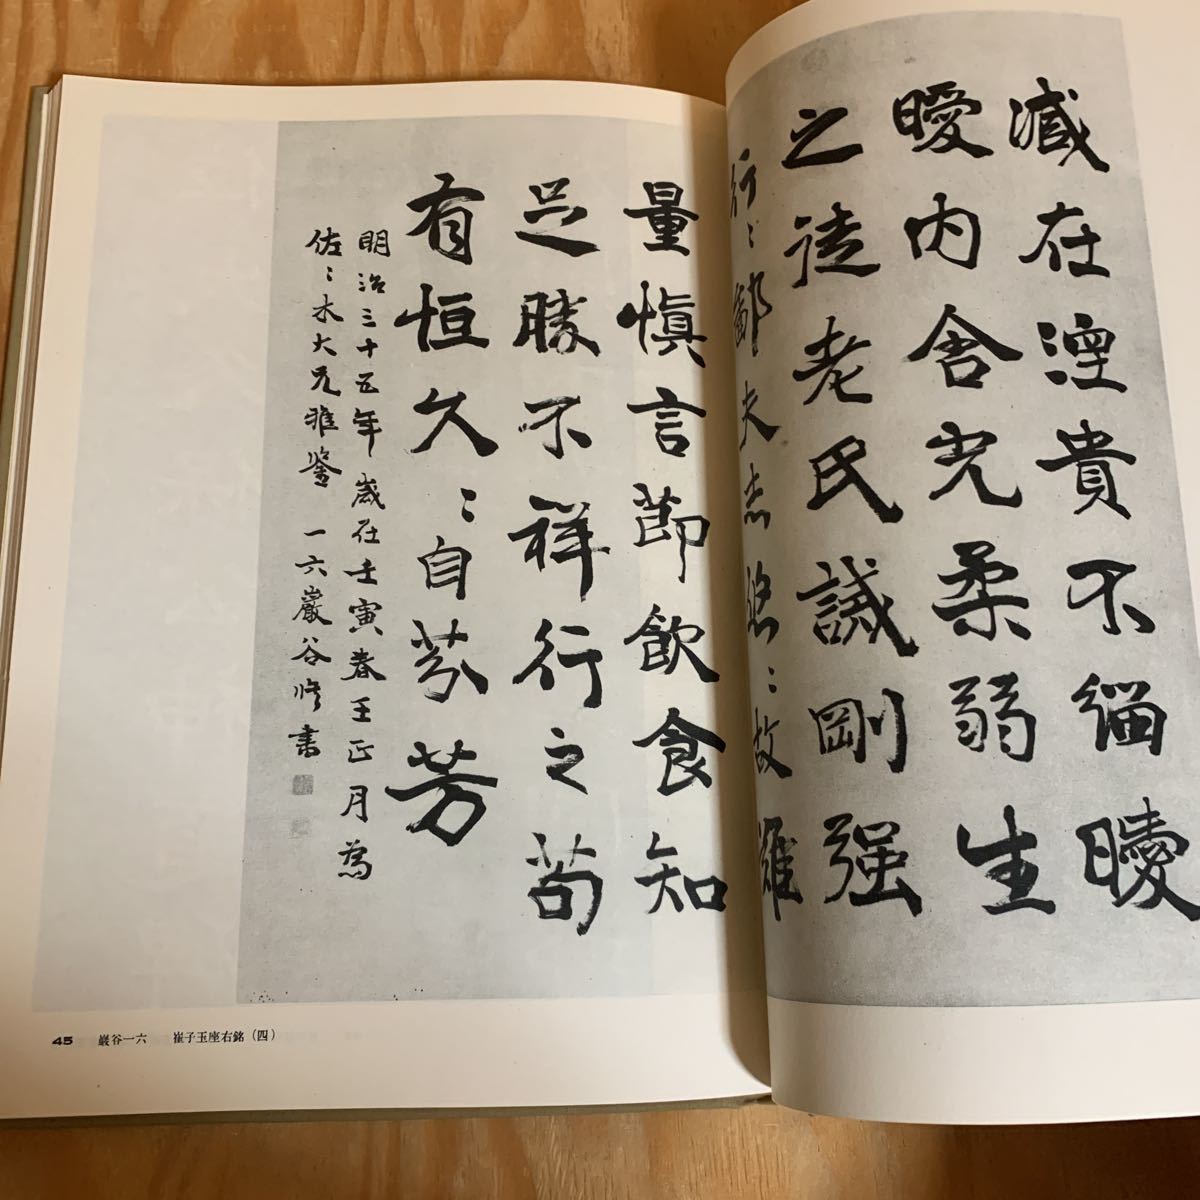 臧在涅貴不緇曖
曖内含光柔弱生
之徒老氏誡剛强
行〻鄙夫志悠〻故難
量愼言節飲食知
足勝不祥行之苟
有恒久〻自芬芳
明治三十五年歳在壬寅春王正月為
佐〻木大兄雅鑒 一六巖谷修書
45 巌谷一六 崔子玉座右銘（四）